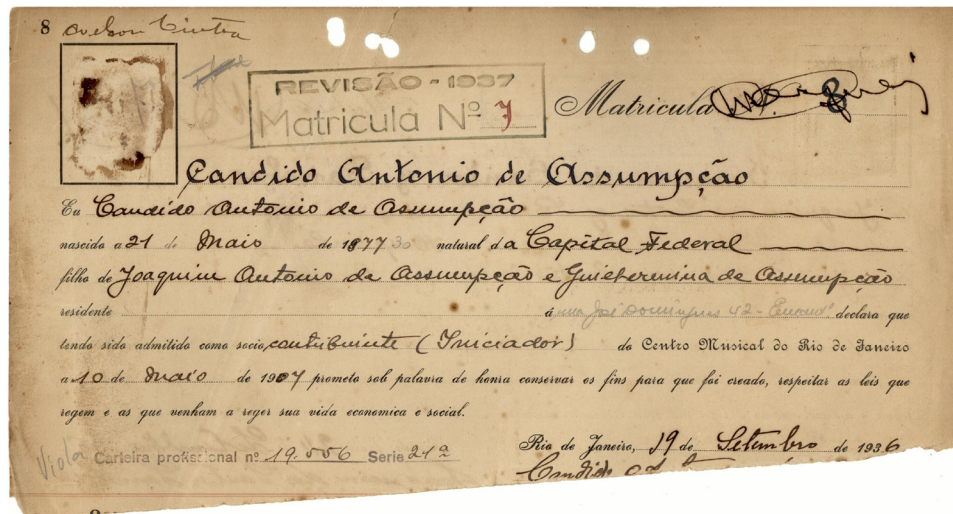 8
REVISÃO - 1937
Matricula Nº 7
Matricula 8
Candido Antonio de Assumpção
Eu Candido Antonio de Assumpção
nascido a 21 de Maio de 1877 natural da Capital Federal
filho de Joaquim Antonio de Assumpção e Guilhermina de Assumpção
residente á rua José Domingues 42 - declara que
tendo sido admitido como socio, contribuinte (Iniciador) do Centro Musical do Rio de Janeiro
a 10 de Maio de 1907 prometo sob palavra de honra conservar os fins para que foi creado, respeitar as leis que
regem e as que venham a reger sua vida economica e social.
Viola Carteira profissional nº 19.556 Serie 21ª
Rio de Janeiro, 19 de Setembro de 1936
Candido